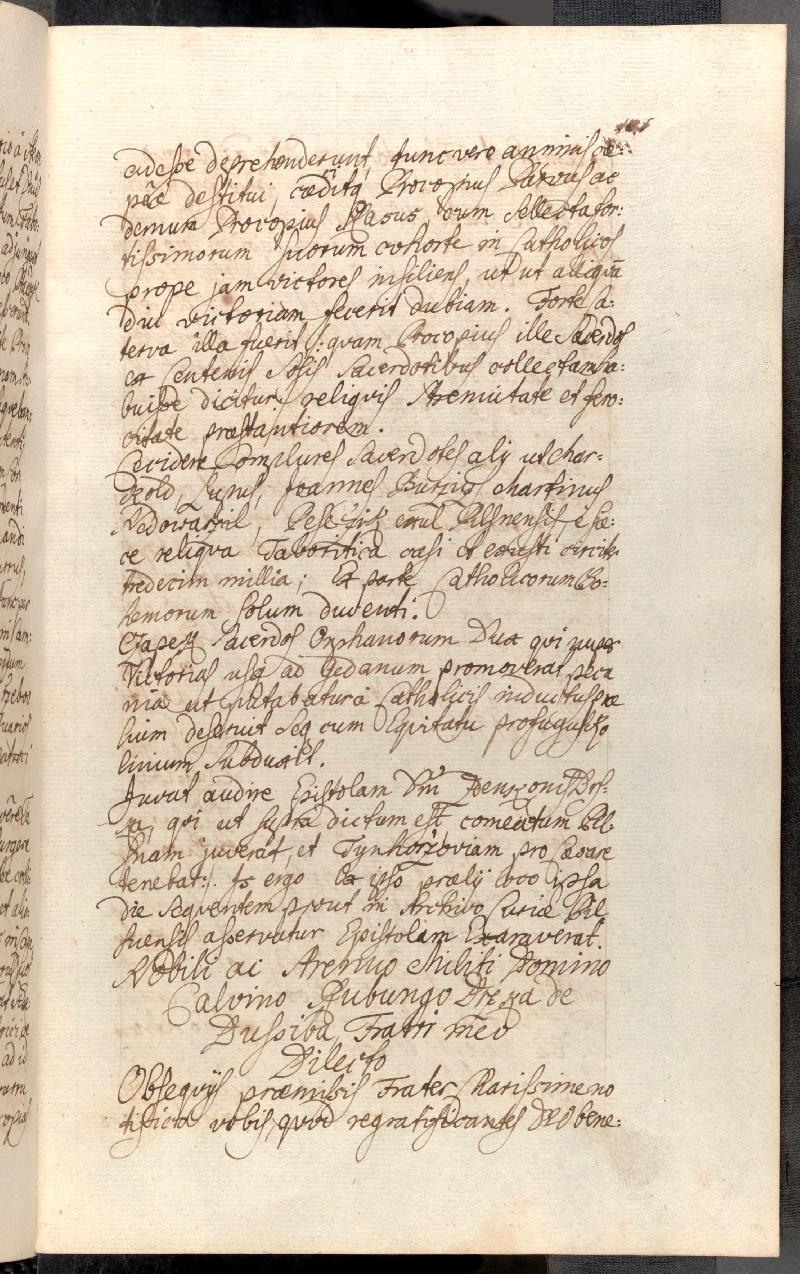 adesse deprehenderunt, tunc vero animis cæ:
pêre destitui, cæditq Procopius Parvus ac
demum Procopius Rasus, cum sellecta for:
tissimorum suorum cohorte in Catholicos
prope jam victores insiliens, ut ut aliquā
diu victoriam fecerit dubiam. Forte Ca:
terva illa fuerit /: quam Procopius ille Sacerdos
ex Centenis Solis Sacerdotibus collectam ha:
buisse dicitur, reliquis strenuitate et fero:
citate præstantiorem.
Cecidere Complures Sacerdotes alij ut Mar:
Lupus, Joannes Martinus
exul Pilsnensis, è fæ:
ce reliqua Taboritica cæsi et exusti circiter
tredecim millia; Ex parte Catholicorum Bo:
hemorum solum ducenti.
Czapek Sacerdos Orphanorum Dux qui nuper
Victorias usq ad Gedanum promoverat, pecu
nia ut putabatur à Catholicis inductus præ
lium deseruit seq cum Equitatu profugus Co
linium subduxit.
Juvat audire Epistolam Dñi
qui ut supra dictum est comeatum Pil:
snam juverat, et Tynhorsoviam pro Cæsare
tenebat:/. Is ergo Ex ipso prælij loco ipsa
die sequentem prout in Archivo Curiæ Pil
snensis asservatur Epistolam Exaraverat.
Nobili ac Strenuo Militi Domino
Calvino de
Fratri meo
Dilecto
Obsequijs præmissis Frater Charissime no
tifico vobis, quod regratificantes DEO bene: